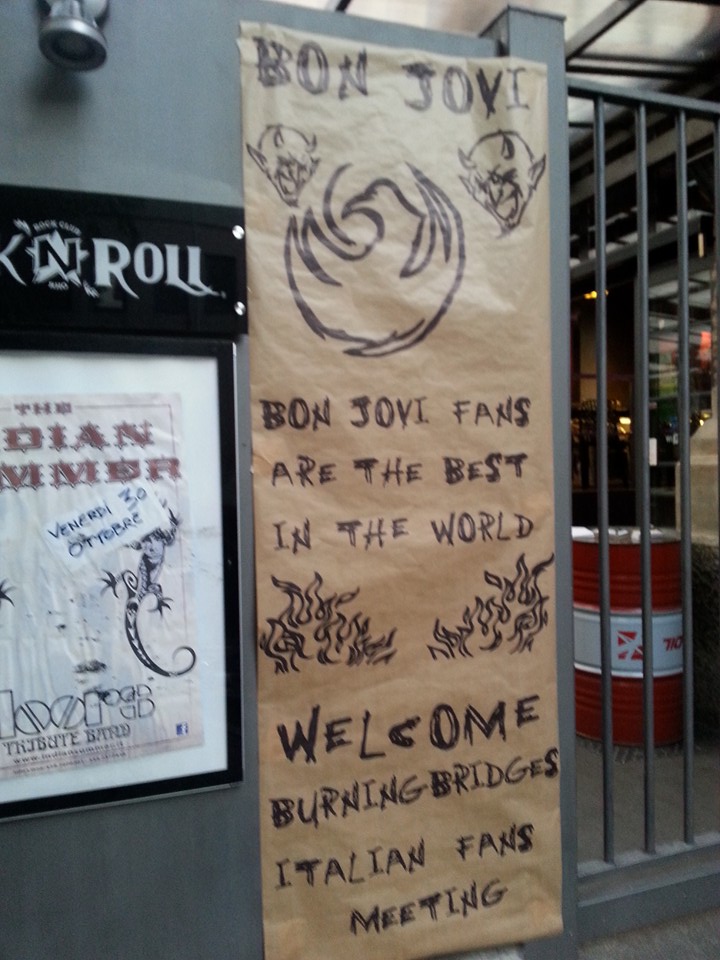 BON JOVI
BON JOVI FANS
ARE THE BEST
IN THE WORLD
WELCOME
BURNING BRIDGES
ITALIAN FANS
MEETING
ROCK CLUB
K'N ROLL
RHO
THE
DIAN
MMER
VENERDÌ 30
OTTOBRE
doors
TRIBUTE BAND